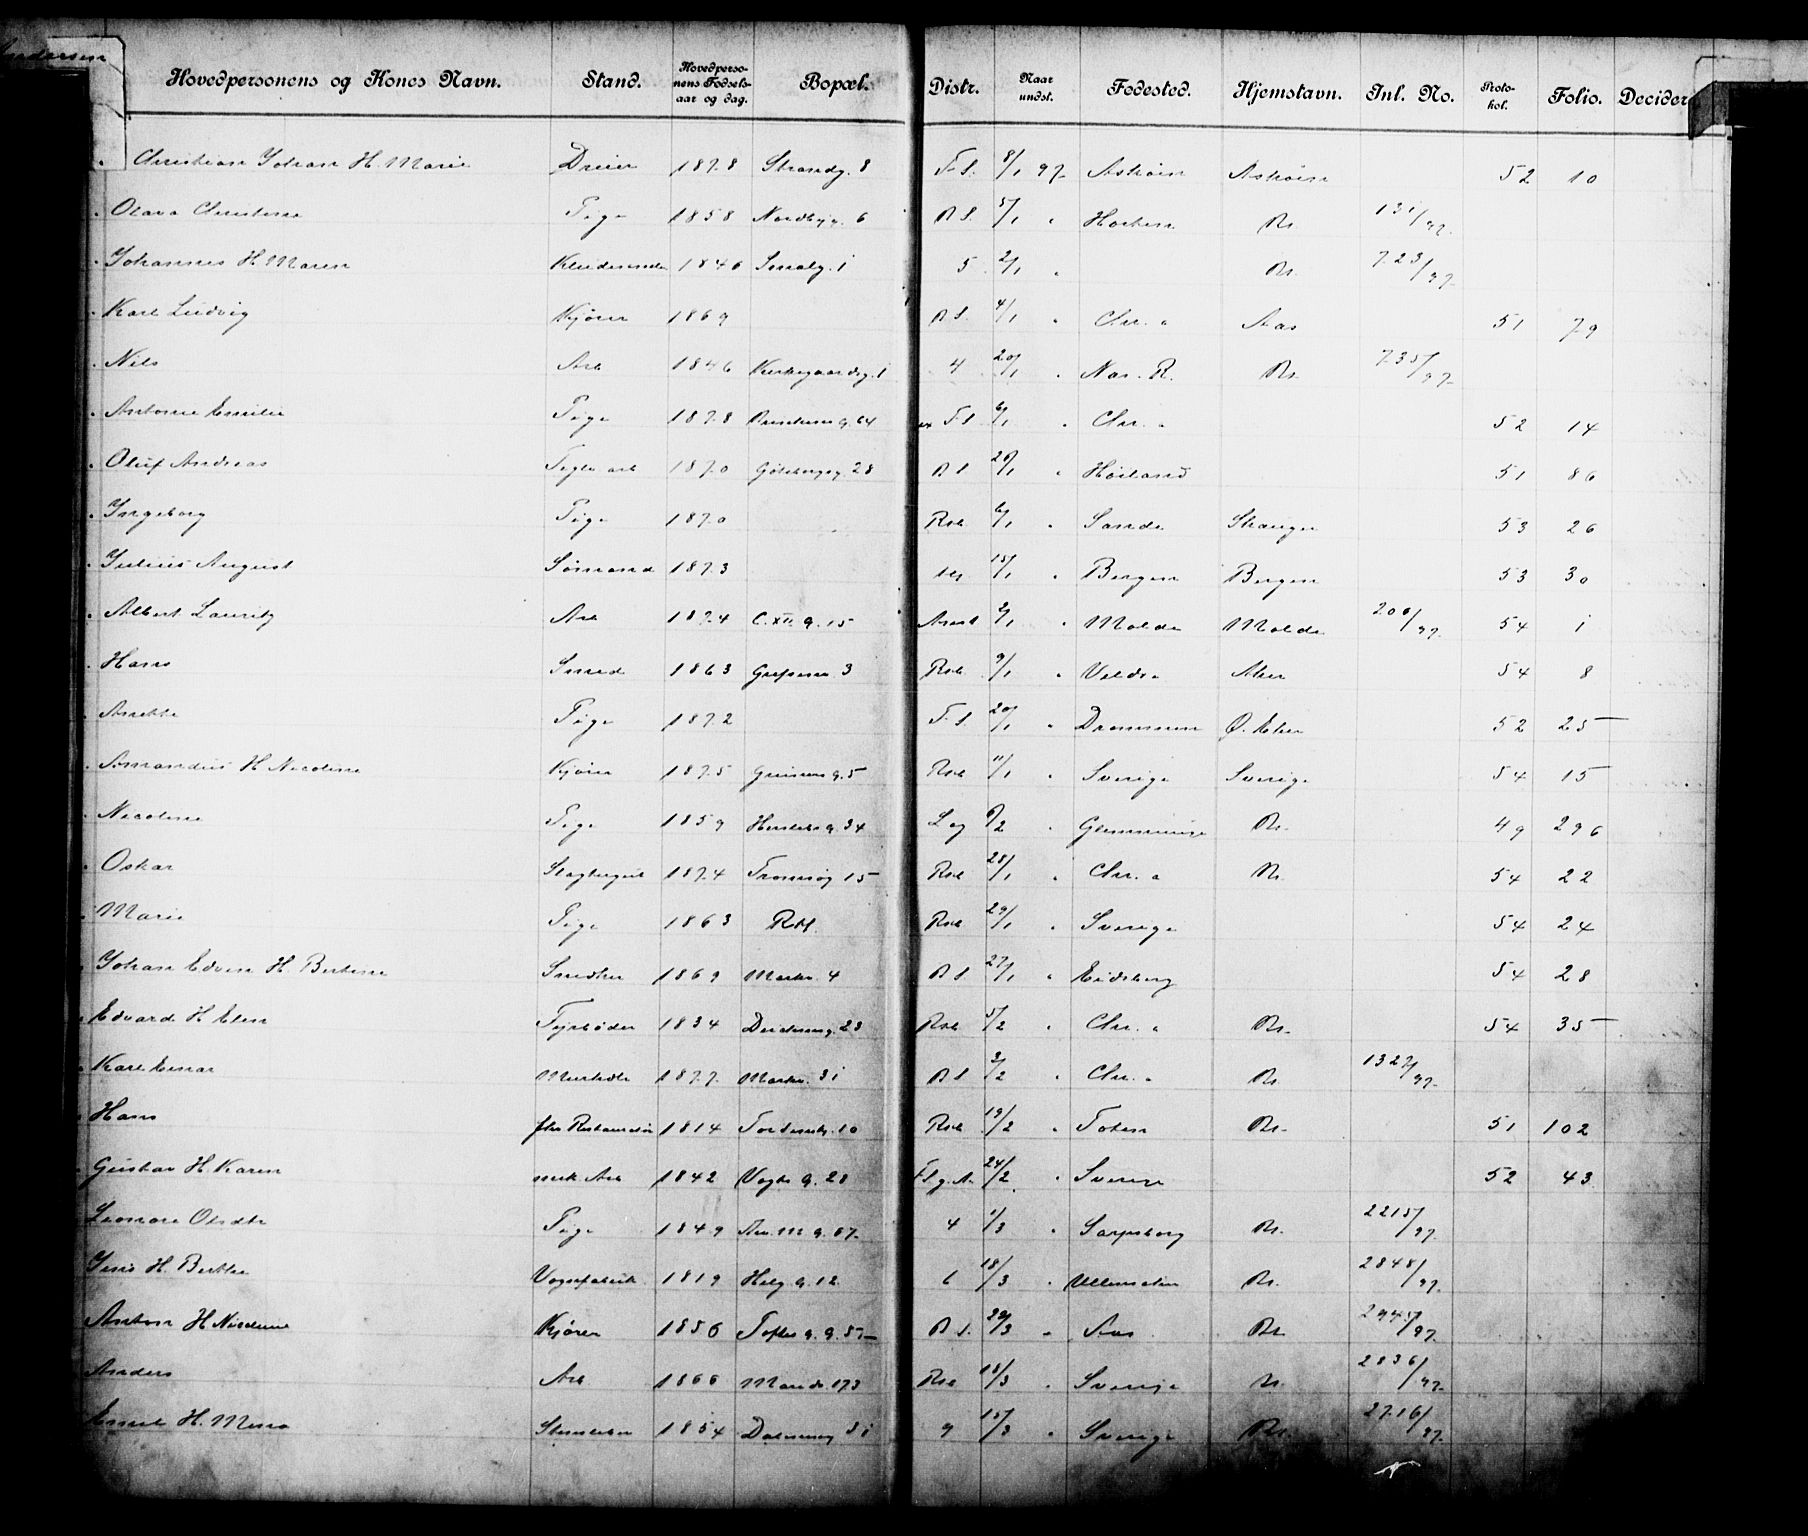 Andersen
Hovedpersonens og Kones Navn. Stand. Hovedpersonens Fødselsaar og dag. Bopæl. Distr. Naar undst. Fødested. Hjemstavn. Inl. No. Protokol. Folio. Decider
Christian Johan H. Marie Dreier 1878 Strandg. 8 F.S. 8/1 97 52 10
Olava Christine Pige 1858 Nordbyg. 6 B S. 5/1 " Horten Do. 131/97.
Johannes H. Maren 1846 Smalg. 1 5 2/1 " Do. 723/97.
Karl Ludvig Kjører 1869 B S. 4/1 " Chr. a Aas 51 79
Nils Arb 1846 Kirkegaardsg. 1 4 20/1 " Nas. R. Do. 735/97.
Antonie Emilie Pige 1878 g. 64 F S. 6/1 " Chr. a 52 14
Oluf Andreas Teglv. arb 1870 Göteborgg. 28 B S. 20/1 " Høiland 51 86
Ingeborg Pige 1870 Rsb. 6/1 " Sande Stange 53 26
Julius August Sømand 1873 15/1 " Bergen Bergen 53 30
Albert Lauritz Arb 1874 C. XII. g. 15 Arest 2/1 " Molde Molde 206/97. 54 1
Hans Smed 1863 Grefsenv. 3 Rsb. 9/1 " Aker 54 8
Anette Pige 1872 F. S. 20/1 " Drammen Ø. Eker 52 25
Amandus H. Nicoline Kjører 1875 g. 5 Rsb. 11/1 " Sverige Sverige 54 15
Nicoline Pige 1859 Herslebs g. 34 Log 6/2 " Glemminge Do. 49 296
Oskar Slagtergut 1874 Tromsøg 15 Rsb. 28/1 " Chr. a Do. 54 22
Marie Pige 1863 Rsbl. Rsb. 29/1 " Sverige 54 24
Johan Edvin H. Bertine Snedker 1869 Markv. 4 B S. 27/1 " Eidsberg 54 28
Edvard H. Elen Fyrbøder 1834 23 Rsb. 5/2 " Chr. a Do. 54 35
Karl Einar 1877. Markv. 31 B S. 3/2 " Chr. a Do. 1327/97.
Hans fhv Restauratør 1814 Tordenskg. 10 Rsb. 19/2 " Toten Do. 51 102
Gustav H. Karen mek. Arb 1842 Vogts g. 28 24/2 " Sverige 52 43
Leonore Olsdtr Pige 1849 g. 67. 4 1/3 " Sarpsborg Do. 2215/97.
Jens H. Berthe Vognfabrik. 1819 Helg. g. 12 6 18/3 " Ullensaker Do. 2848/97.
Anton H. Nicoline Kjører 1856 Toftes g. 9. 5 B S. 20/3 " Aas Do. 2945/97.
Anders Arb. 1866 Mands. 173 Rsb 18/3 " Sverige Do. 2836/97.
Emil H. Mina Stenhuker 1854 31 9 15/3 " Sverige Do. 2716/97.